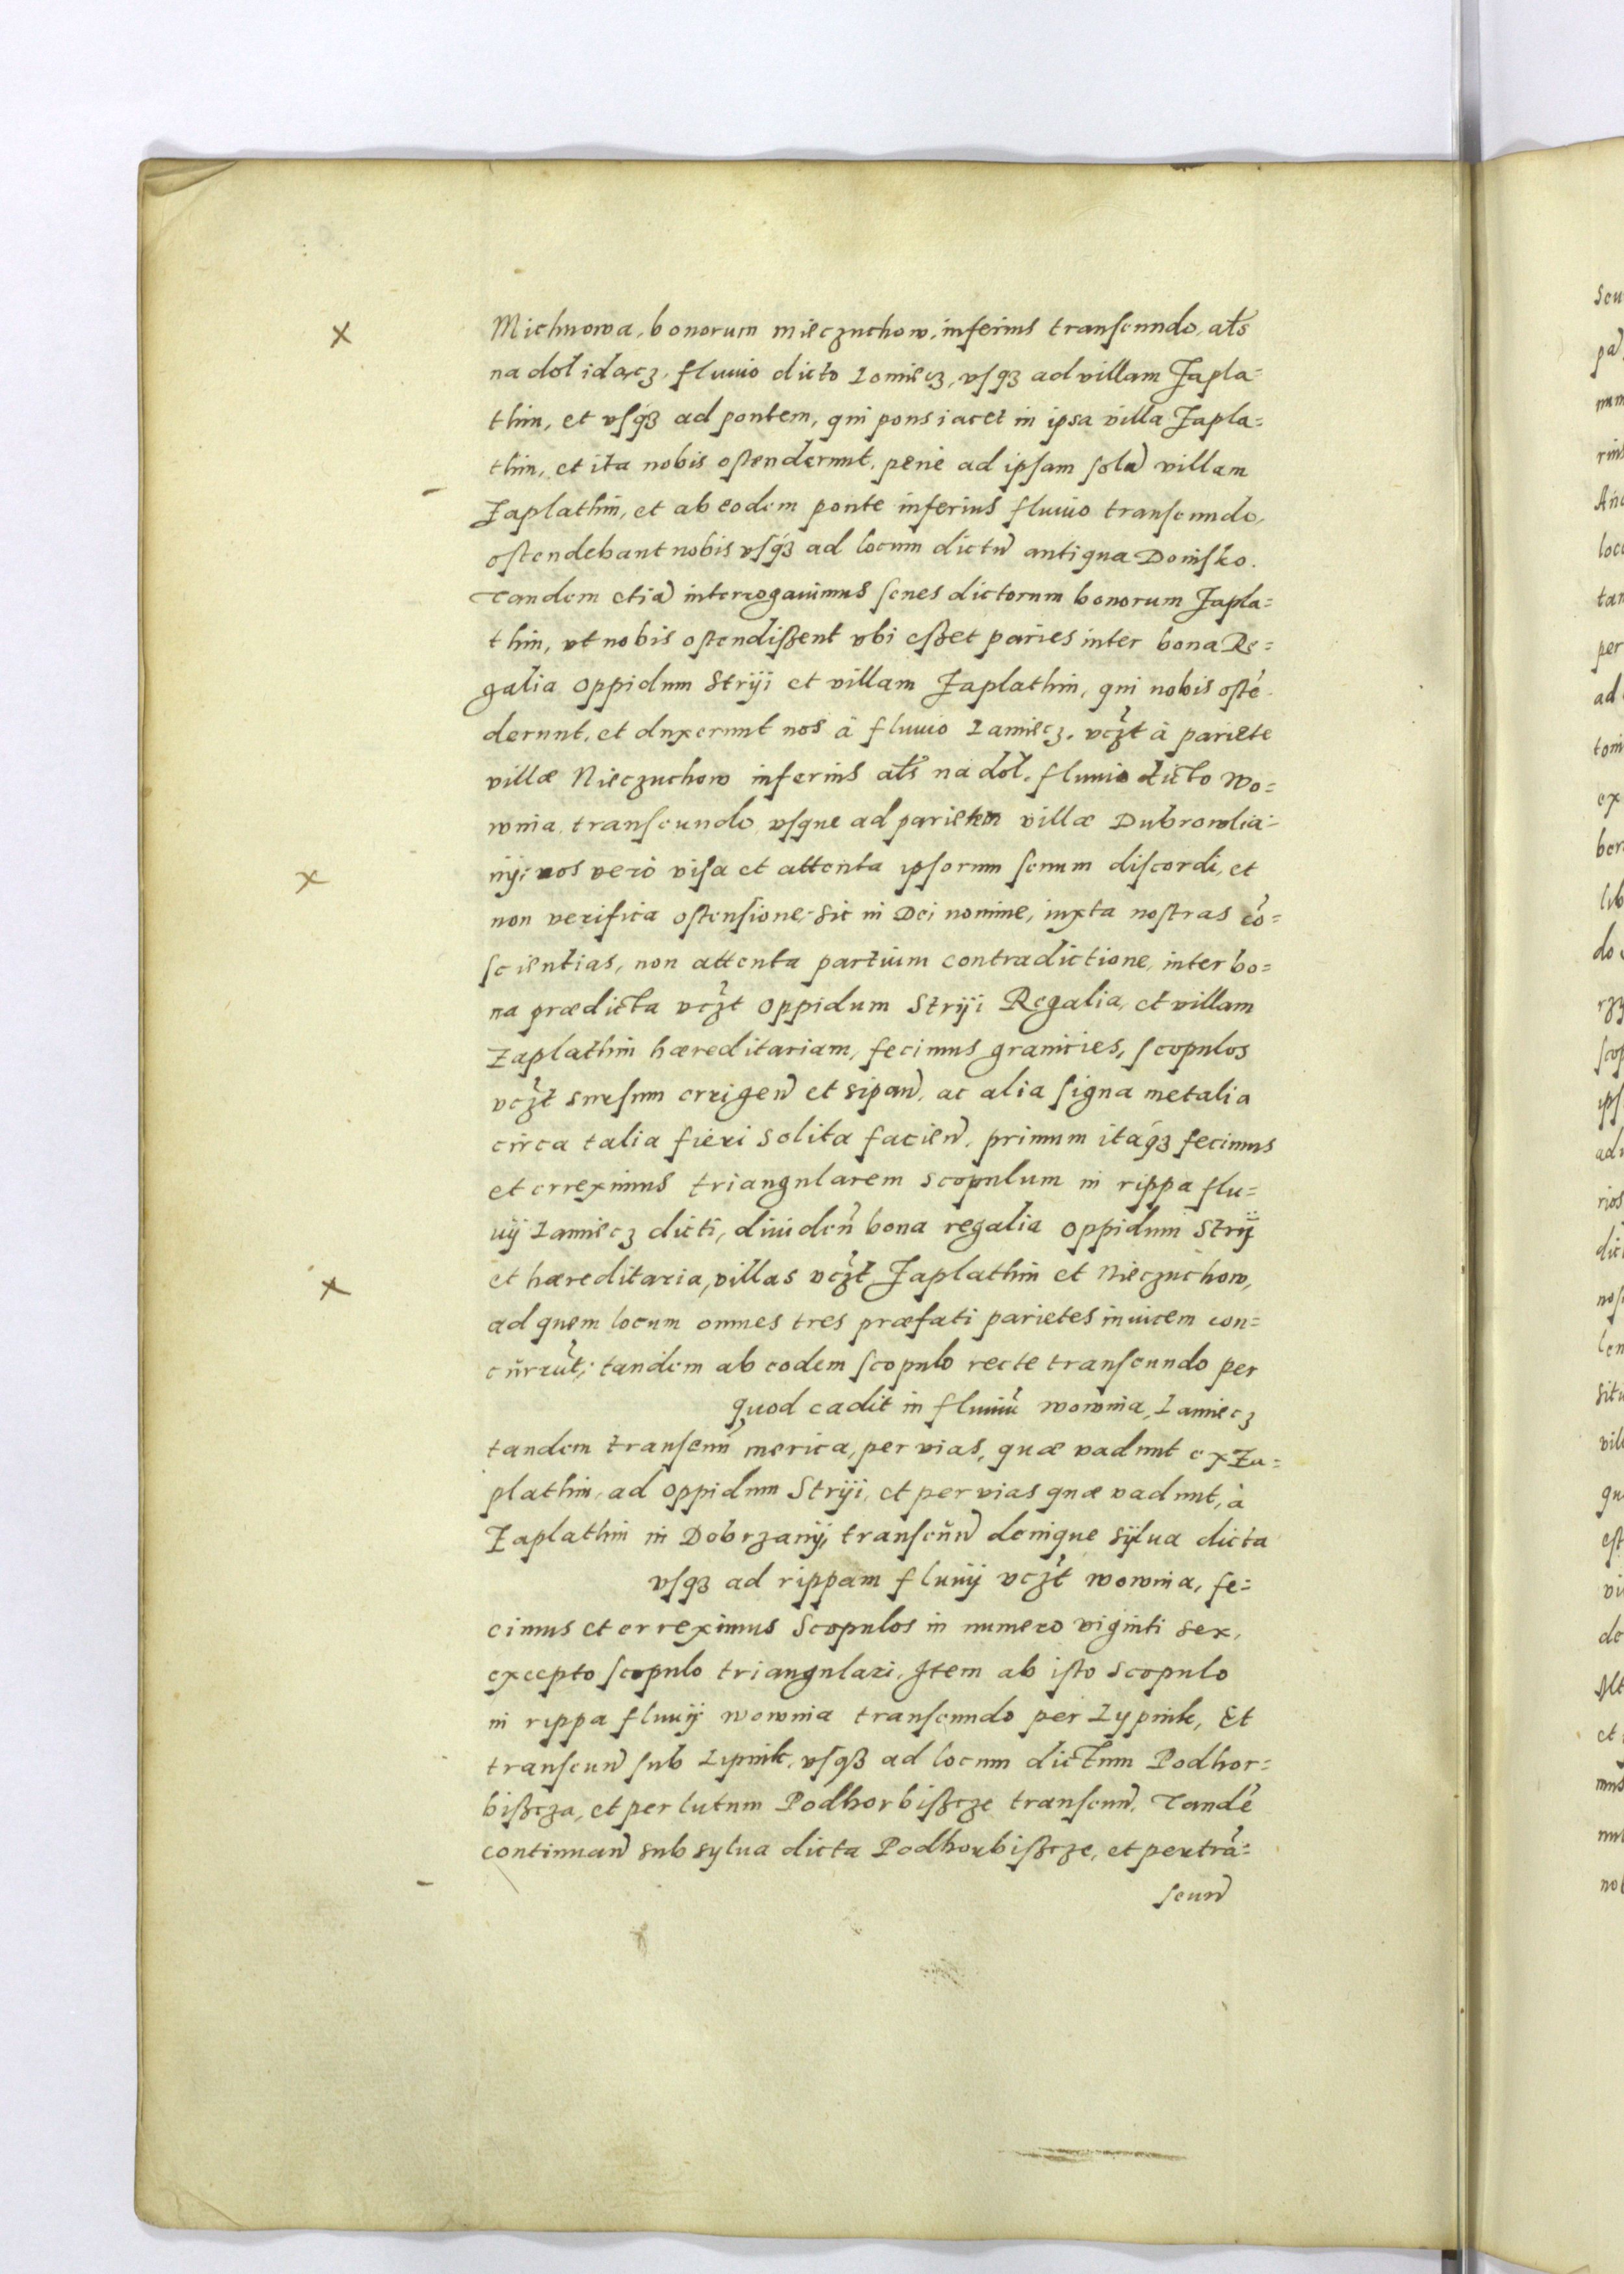 Michnowa, bonorum mieczuchow, inferius transeundo, als
na dol idacz, fluuio dicto Lomiecz, vsqз ad villam Zapla=
thin, et vsqз ad pontem, qui pons iacet in ipsa villa Zapla=
thin, et ita nobis ostenderunt, pene ad ipsam sola villam
Zaplathin, et ab eodem ponte inferius fluuio transeundo,
ostendebant nobis vsqз ad locum dictũ antiqua Donisko.
Tandem etiã interrogauimus senes dictorum bonorum Zapla=
thin, vt nobis ostendißent vbi eßet paries inter bona Re=
galia oppidum Striji et villam Zaplathin, qui nobis ostẽ
derunt, et duxerunt nos à fluuio Lamiecz, vczt à pariete
villæ Nieczuchow inferius als na dol, fluuio dicto Wo=
wnia transeundo vsque ad parietem villæ Dubrowlia=
nÿ: nos verò visa et attenta ipsorum senum discordi, et
non verifica ostensione, sic in Dei nomine, iuxta nostras cõ=
scientias, non attenta partium contradictione, inter bo=
na prædicta vczt oppidum Striji Regalia, et villam
Zaplathin hæreditariam, fecimus granicies, scopulos
vczt sursum errigeñ et sipañ, ac alia signa metalia
circa talia fieri solita facieñ, primum itaqз fecimus
et erreximus triangularem scopulum in rippa flu=
uÿ Lamiecz dicti, diuideñ bona regalia oppidum Strÿ
et hæreditaria, villas vczt Zaplathin et Nieczuchow,
ad quem locum omnes tres præfati parietes inuicem con=
currũt; tandem ab eodem scopulo recte transeundo per
quod cadit in fluuiũ wownia, Lamiecz
tandem transeuñ merica, per vias, quæ vadunt ex Za=
plathin, ad oppidum Striji, et per vias quæ vadunt, à
Zaplathin in Dobrzanÿ, transeuñ denique sylua dicta
vsqз ad rippam fluuÿ vczt wownia, fe=
cimus et erreximus Scopulos in numero viginti sex,
excepto scopulo triangulari, Item ab isto scopulo
in rippa fluuÿ wownia transeundo per Lypnik, Et
transeuñ sub Lipnik, vsqз ad locum dictum Podhor=
bißcza, et per lutum Podhorbißcze transeuñ, Tandẽ
continuañ sub sylua dicta Podhorbißcze, et pertrã=
seuñ